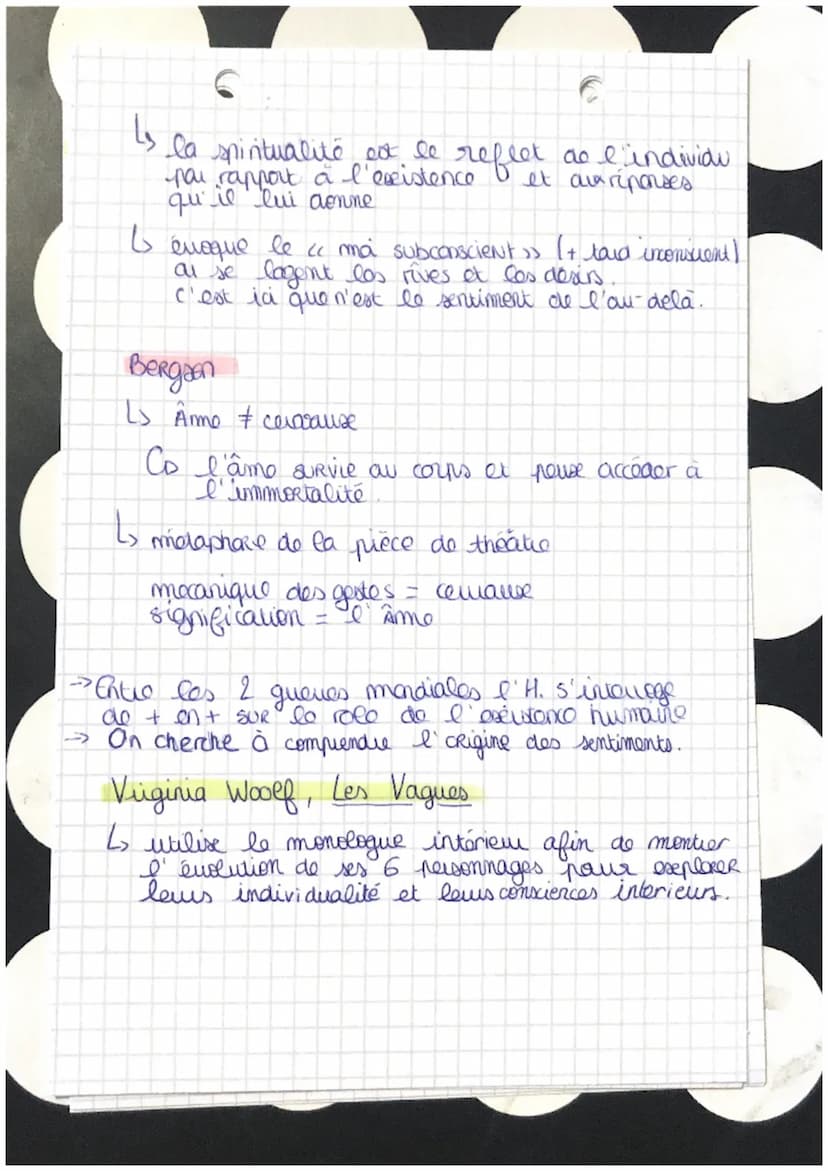 ↳ la spiritualité est le reflet de l'individu
par rapport à l'existence et aux réponses
qu'il lui donne
↳ évoque le « moi subconscient » (+ tard inconscient)
où se logent les rêves et les désirs.
c'est ici que n'est le sentiment de l'au-delà.
Bergson
↳ Âme ≠ cerveau
l'âme survie au corps et peut accéder à
l'immortalité.
↳ métaphore de la pièce de théâtre
mécanique des gestes = cerveau
signification = l'âme
→ Entre les 2 guerres mondiales l'H. s'interroge
de + en + sur le role de l'existence humaine
→ On cherche à comprendre l'origine des sentiments.
Virginia Woolf, Les Vagues
↳ utilise le monologue intérieur afin de montrer
l'évolution de ses 6 personnages pour explorer
leurs individualité et leurs consciences interieurs.